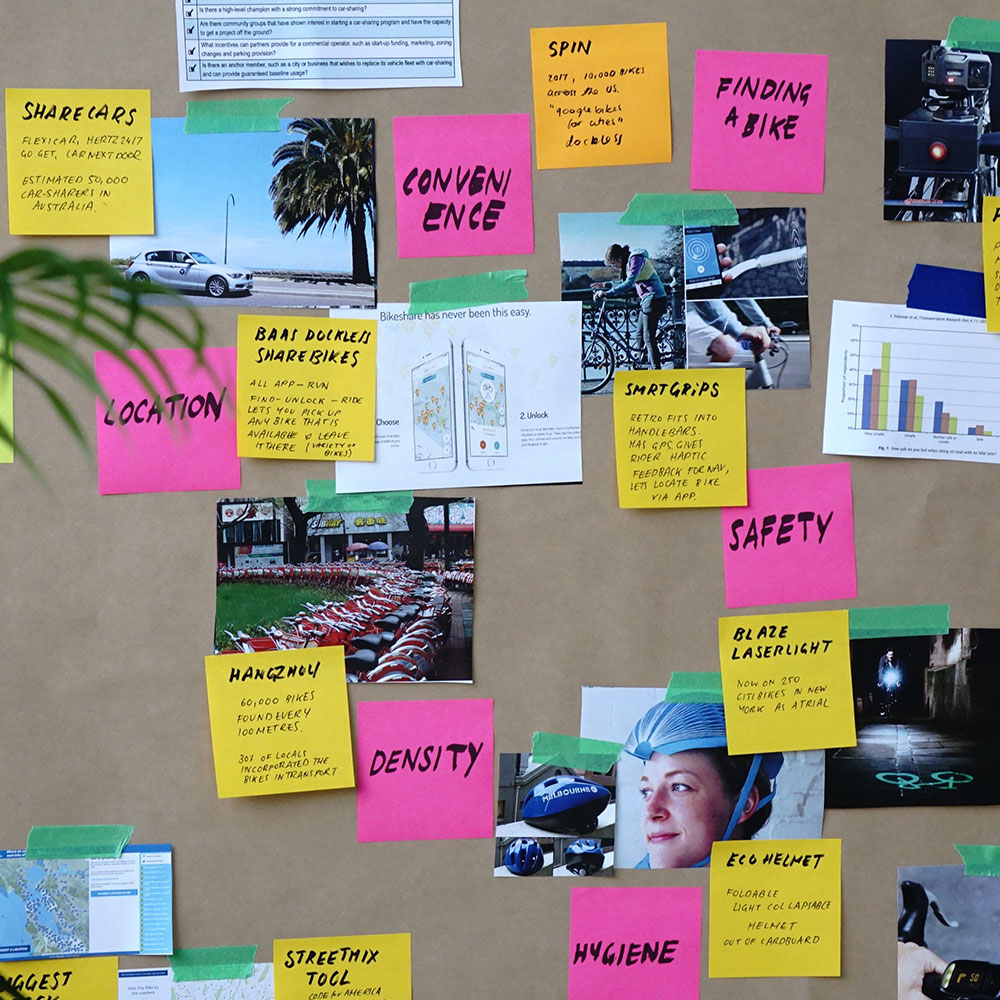 Is there a high-level champion with a strong commitment to car-sharing?
Are there community groups that have shown interest in starting a car-sharing program and have the capacity
to get a project off the ground?
What incentives can partners provide for a commercial operator, such as start-up funding, marketing, zoning
changes and parking provision?
Is there an anchor member, such as a city or business that wishes to replace its vehicle fleet with car-sharing
and can provide guaranteed baseline usage?
SHARECARS
FLEXICAR, HERTZ 24/7
GO GET, CAR NEXT DOOR
ESTIMATED 50,000
CAR-SHARERS IN
AUSTRALIA.
CONVENI
ENCE
SPIN
2017, 10,000 BIKES
across the US.
"google bikes
for cities"
dockless
FINDING
A BIKE
LOCATION
BAAS DOCKLESS
SHAREBIKES
ALL APP-RUN
FIND-UNLOCK-RIDE
LETS YOU PICK UP
ANY BIKE THAT IS
AVAILABLE & LEAVE
IT THERE (VARIETY OF
BIKES)
Bikeshare has never been this easy.
Choose
2. Unlock
SMRTGRiPS
RETRO FITS INTO
HANDLEBARS.
HAS GPS, GIVES
RIDER HAPTIC
FEEDBACK FOR NAV,
LETS LOCATE BIKE
VIA APP.
SAFETY
SUBWAY
HANGZHOU
60,000 BIKES
FOUND EVERY
100 METRES.
30% OF LOCALS
INCORPORATED THE
BIKES IN TRANSPORT
DENSITY
BLAZE
LASERLIGHT
NOW ON 250
CITIBIKES IN NEW
YORK AS A TRIAL
MELBOURNE
ECO HELMET
FOLDABLE
LIGHT COLLAPSABLE
HELMET
OUT OF CARDBOARD
HYGIENE
STREETMIX
TOOL
CODE for AMERICA
50